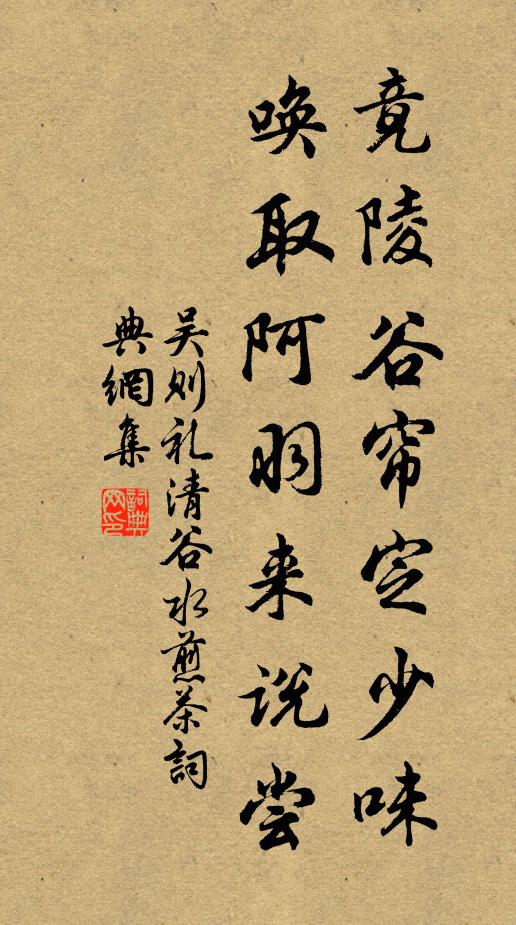 竟陵谷帘定少味
唤取阿羽来说尝
吴则礼清谷水煎茶詞
典網集
詞典網印